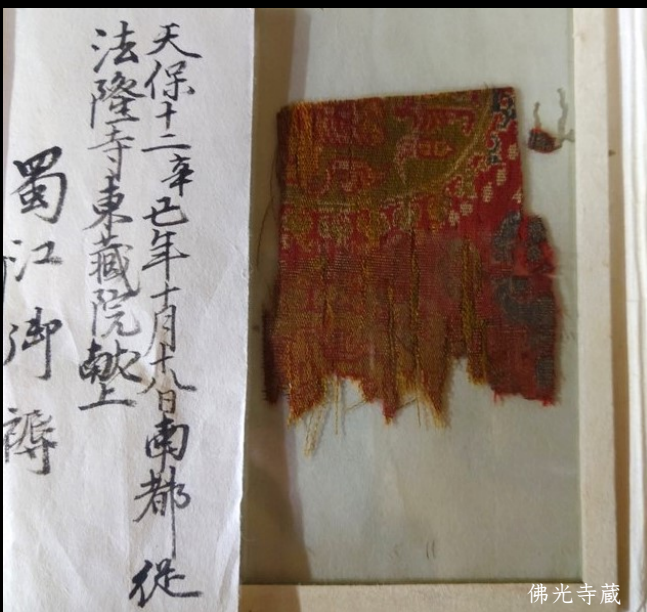 天保十二辛巳年十月十八日南都従
法隆寺東蔵院献上
蜀江御褥
佛光寺蔵